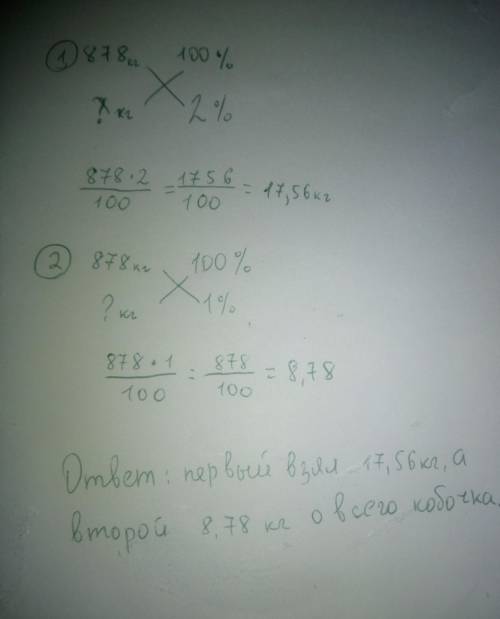 1 878кг 100%
? кг 2%
878·2/100 = 1756/100 = 17,56кг
2 878кг 100%
? кг 1%
878·1/100 = 878/100 = 8,78
Ответ: первый взял 17,56кг, а
второй 8,78 кг о всего кобочка.